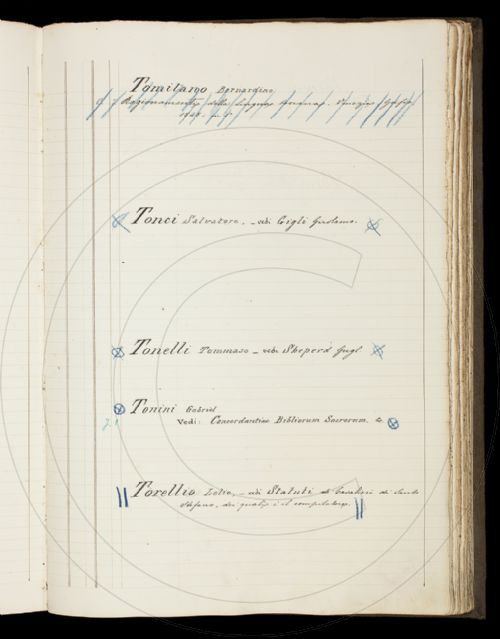 Tomitano Bernardino
Ragionamento della lingua toscana. Venezia
Tonci Salvatore. - vedi Gigli Girolamo.
Tonelli Tommaso - vedi Sheperd Gugl.
Tonini Gabriel
Vedi: Concordantiae Bibliorum Sacrorum. &
Torellio Lelio, - vedi Statuti de Cavalieri di Santo
Stefano, dei quali è il compilatore.